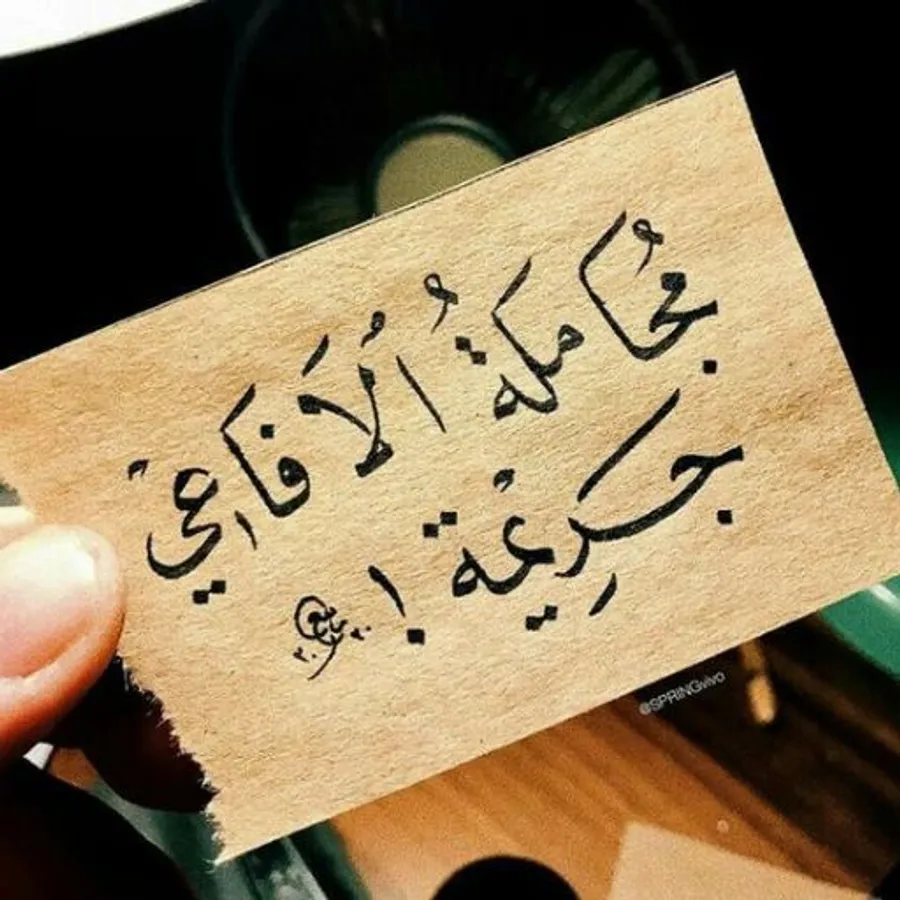 مُجَامَلةُ الُأَفَاعيْ
جَرِيْمة !
@SPRINGvivo